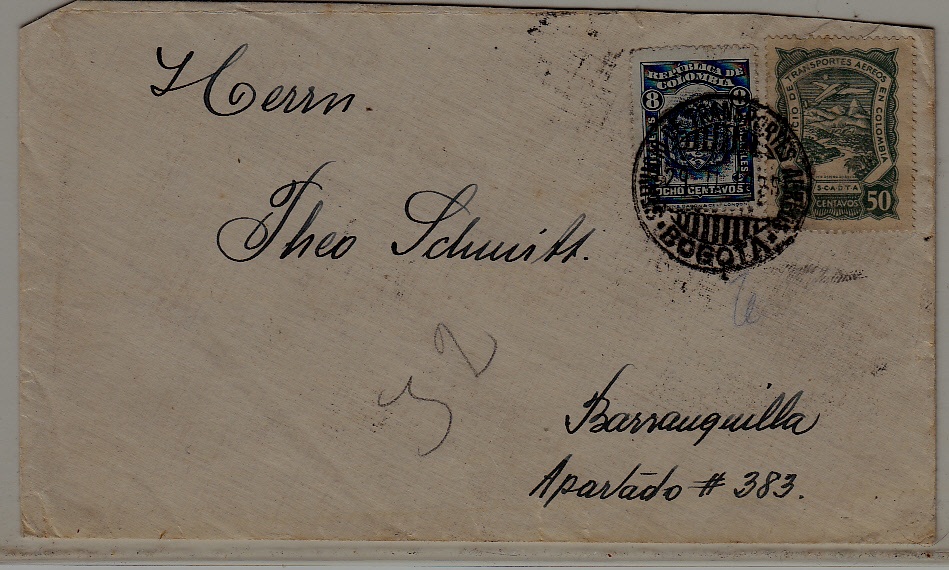 Herrn
Theo Schmitt.
Barranquilla
Apartado # 383.
REPÚBLICA DE
COLOMBIA
8
OCHO CENTAVOS
SERVICIO DE TRANSPORTES AÉREOS EN COLOMBIA
S·CADTA
CENTAVOS 50
BOGOTA
32